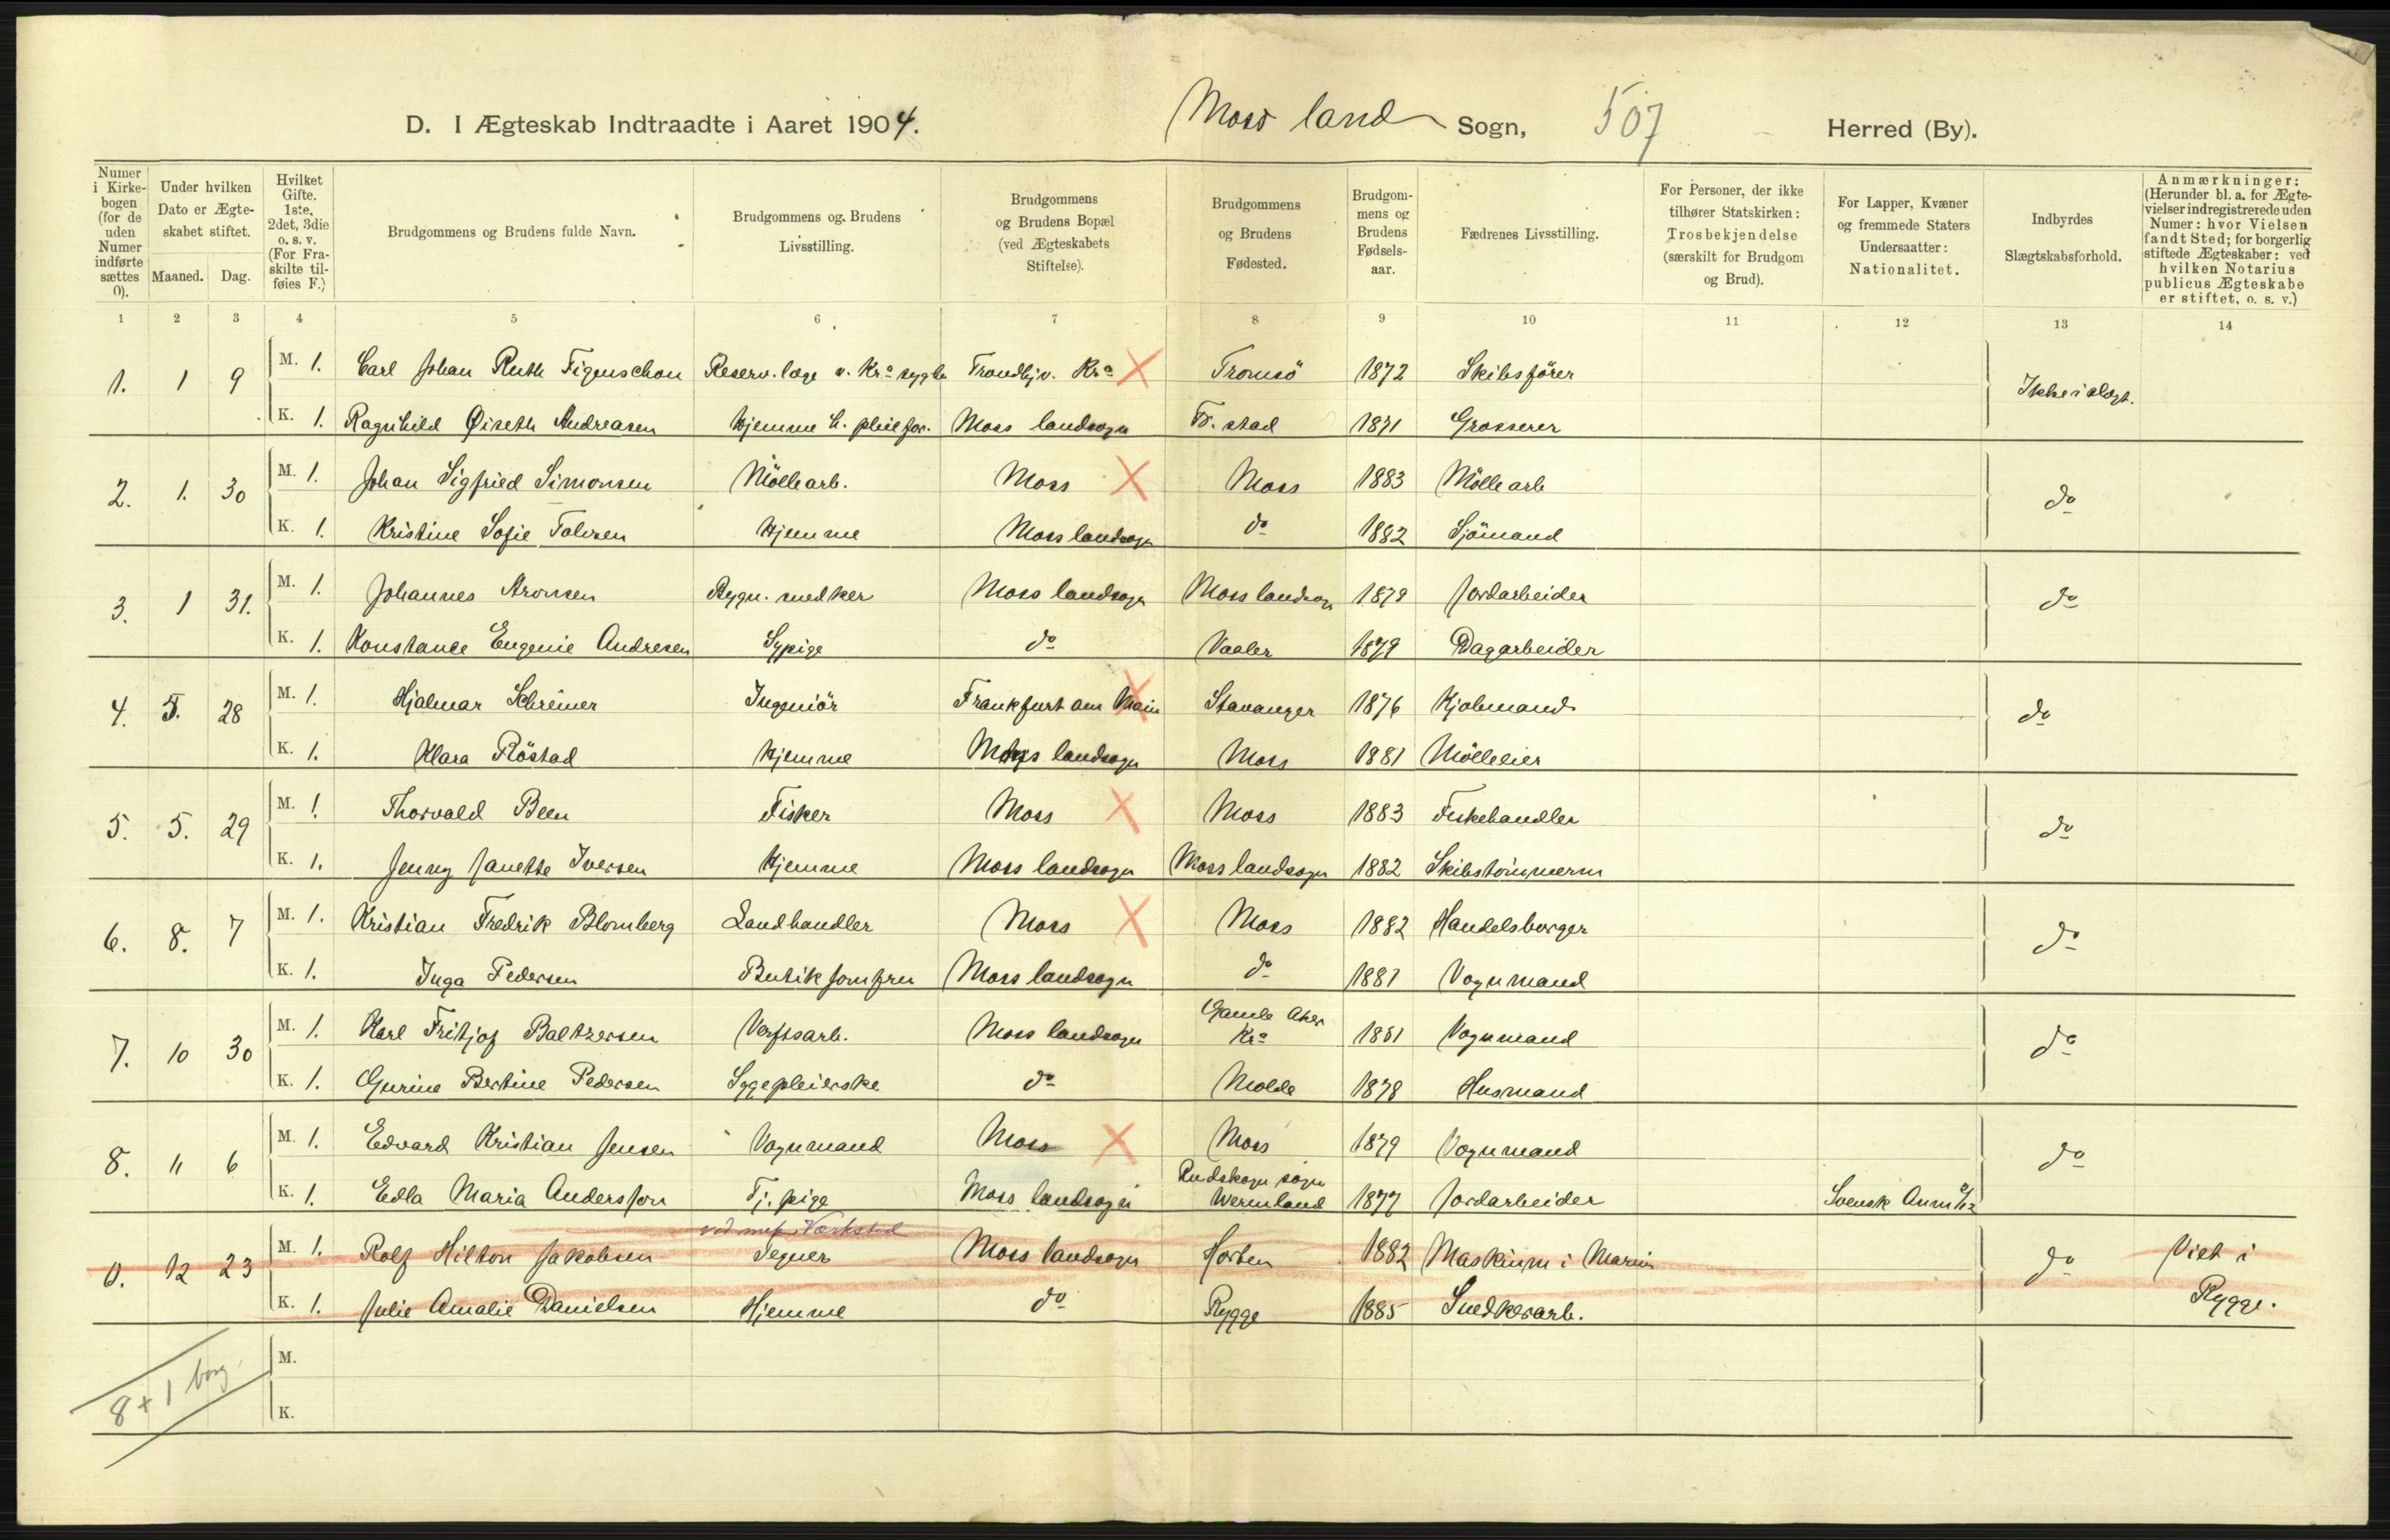 D. I Ægteskab Indtraadte i Aaret 1904. Moss land Sogn, 507 Herred (By).
Numer i Kirkebogen (for de uden Numer indførte sættes 0).
Under hvilken Dato er Ægteskabet stiftet. Maaned. Dag.
Hvilket Gifte. 1ste, 2det, 3die o. s. v. (For Fraskilte tilføies F.)
Brudgommens og Brudens fulde Navn.
Brudgommens og Brudens Livsstilling.
Brudgommens og Brudens Bopæl (ved Ægteskabets Stiftelse).
Brudgommens og Brudens Fødested.
Brudgommens og Brudens Fødselsaar.
Fædrenes Livsstilling.
For Personer, der ikke tilhører Statskirken: Trosbekjendelse (særskilt for Brudgom og Brud).
For Lapper, Kvæner og fremmede Staters Undersaatter: Nationalitet.
Indbyrdes Slægtskabsforhold.
Anmærkninger: (Herunder bl. a. for Ægtevielser indregistrerede uden Numer: hvor Vielsen fandt Sted; for borgerlig stiftede Ægteskaber: ved hvilken Notarius publicus Ægteskabe er stiftet, o. s. v.)
1 2 3 4 5 6 7 8 9 10 11 12 13 14
1. 1 9 M. 1. Carl Johan Ruth Figenschou Reserv. læge v. Kra sygh Trondhjv. Kra Tromsö 1872 Skibsförer Ikke i slægt.
K. 1. Ragnhild Øiseth Andreasen Hjemme h. pleiefor. Moss landsogn Fr. stad 1871 Grosserer
2. 1. 30 M. 1. Johan Sigfried Simonsen Möllearb. Moss Moss 1883 Möllearb do
K. 1. Kristine Sofie Tolvsen Hjemme Moss landsogn do 1882 Sjömand
3. 1 31. M. 1. Johannes Aronsen Bygn. snedker Moss landsogn Moss landsogn 1879 Jordarbeider do
K. 1. Konstance Eugenie Andresen Sypige do Vaaler 1879 Dagarbeider
4. 5. 28 M. 1. Hjalmar Schreiner Ingeniör Frankfurt am Main Stavanger 1876 Kjøbmand do
K. 1. Klara Röstad Hjemme Moss landsogn Moss 1881 Mölleeier
5. 5. 29 M. 1. Thorvald Been Fisker Moss Moss 1883 Fiskehandler do
K. 1. Jenny Janette Iversen Hjemme Moss landsogn Moss landsogn 1882 Skibstömmerm
6. 8. 7 M. 1. Kristian Fredrik Blomberg Landhandler Moss Moss 1882 Handelsborger do
K. 1. Inga Pedersen Butikjomfru Moss landsogn do 1881 Vognmand
7. 10 30 M. 1. Karl Fritjof Baltzersen Verftsarb. Moss landsogn Gamle Aker Kra 1881 Vognmand do
K. 1. Gurine Bertine Pedersen Sygepleierske do Molde 1878 Husmand
8. 11 6 M. 1. Edvard Kristian Jensen Vognmand Moss Moss 1879 Vognmand do
K. 1. Edla Maria Andersson Tj. pige Moss landsogn Rudskogn sogn Wermland 1877 Jordarbeider Svensk
ved mek. Værksted
0. 12 23 M. 1. Rolf Hilton Jakobsen Tegner Moss landsogn Horten 1882 Maskinm i Marin do Viet i
K. 1. Julie Amalie Danielsen Hjemme do Rygge 1885 Snedkerarb. Rygge.
M.
8 + 1 borg.
K.